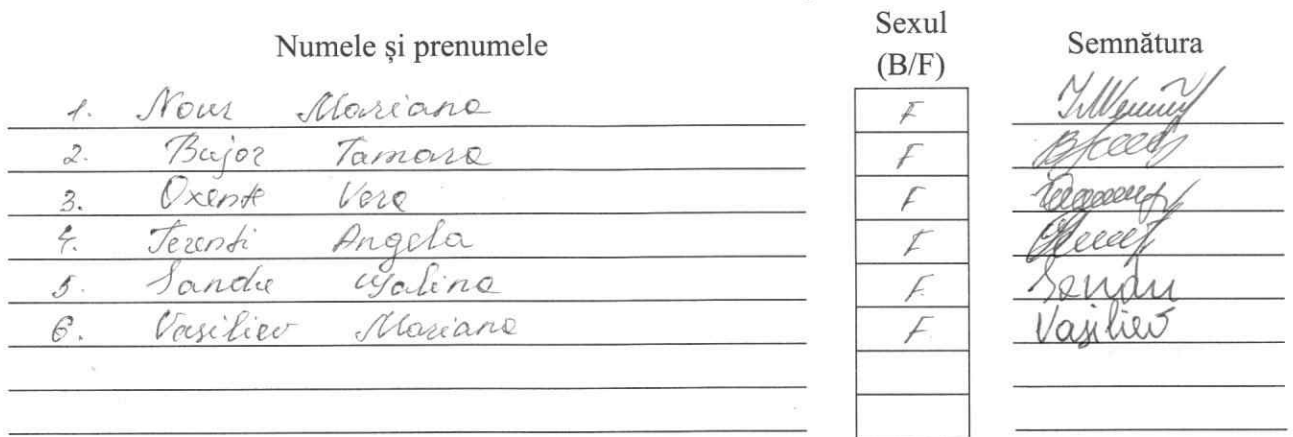 Numele și prenumele Sexul (B/F) Semnătura
1. Nour Mariana F
2. Bajor Tamara F
3. Oxente Vera F
4. Terenti Angela F
5. Sandu Galina F. Sandu
6. Vasiliev Mariana F Vasiliev